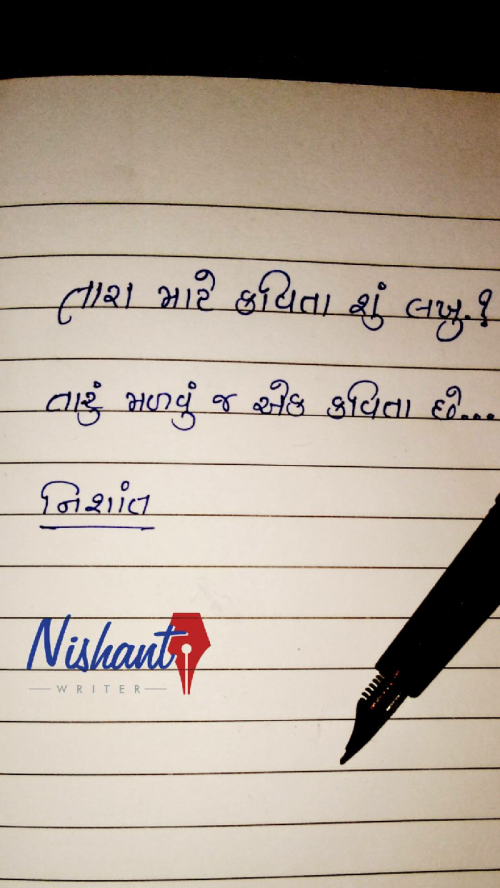 તારા માટે કવિતા શું લખુ.?
તારું મળવું જ એક કવિતા છે...
નિશાંત
Nishant
WRITER